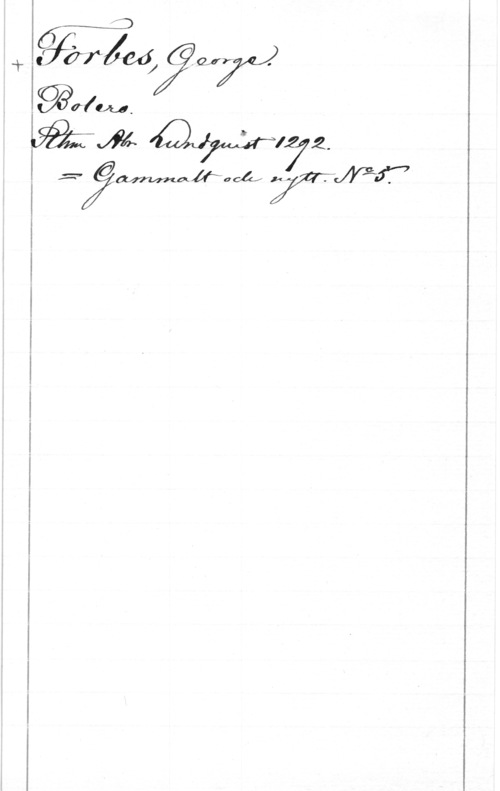 + Forbes, George.
Bolero.
Sthm Abr Lundquist 1292.
= Gammalt och nytt. No 5.